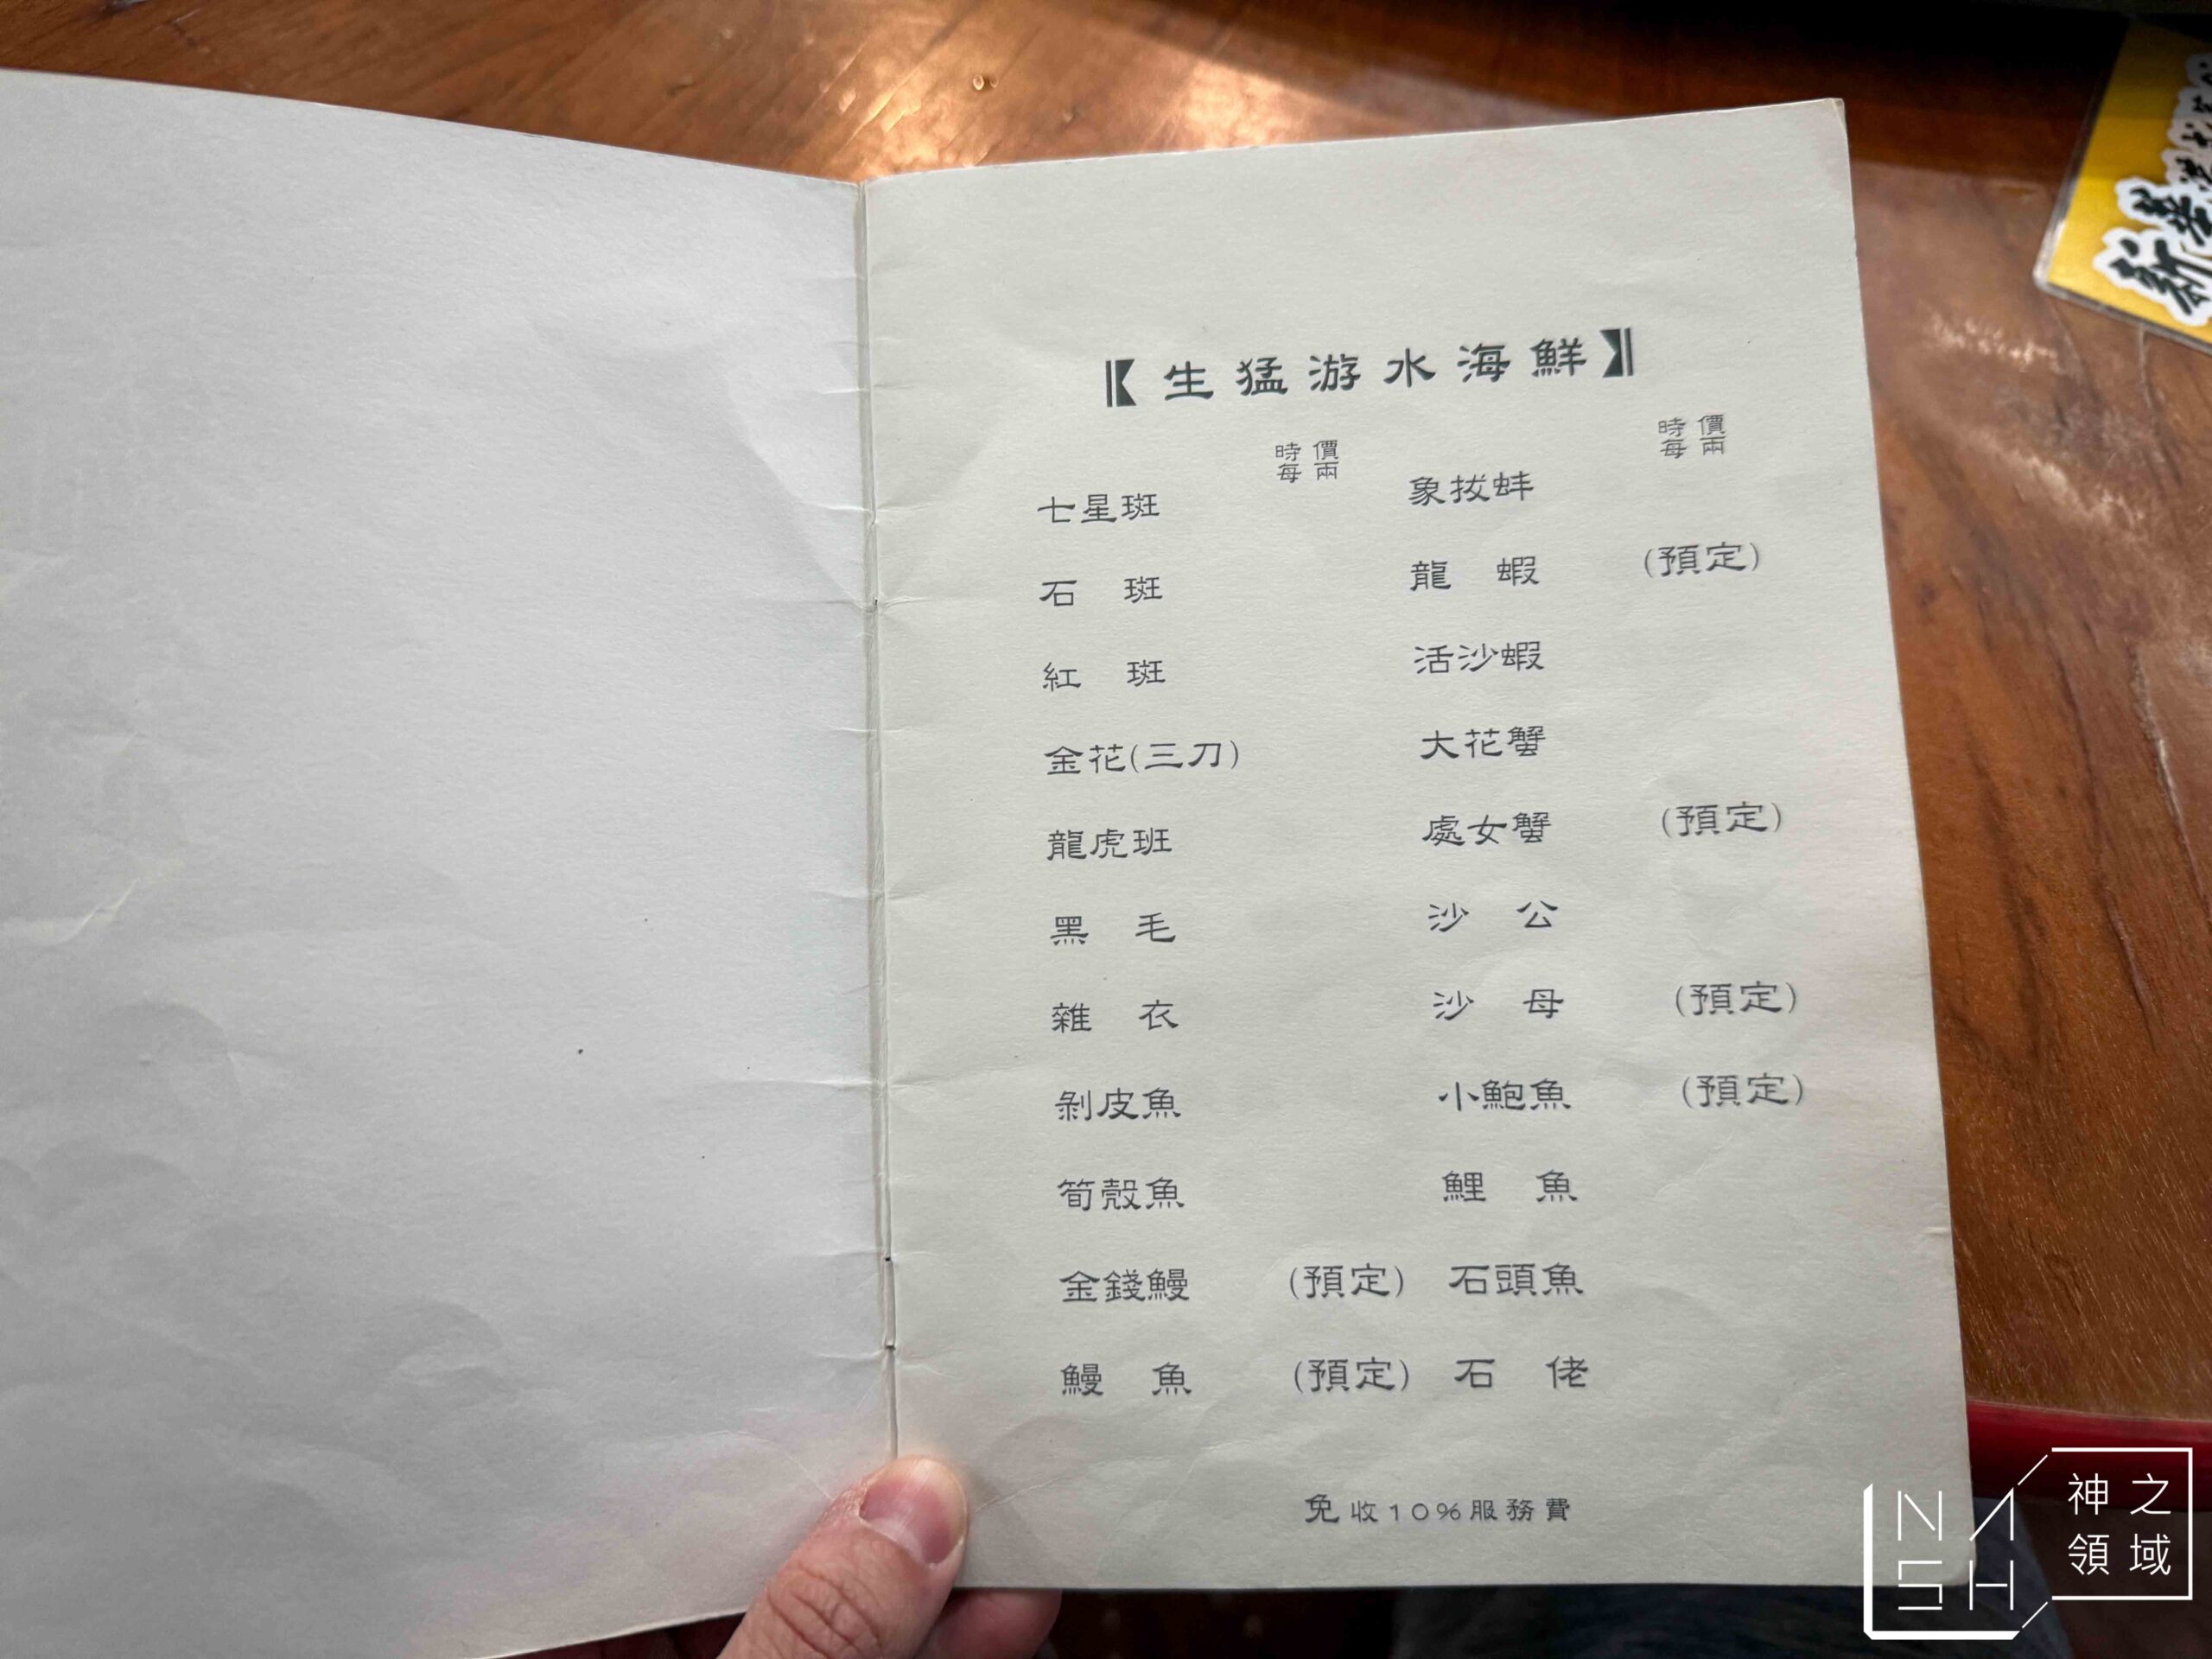 【生猛游水海鮮】
時價
每兩
時價
每兩
七星斑
石 斑
紅 斑
金花(三刀)
龍虎班
黑 毛
雜 衣
剝皮魚
筍殼魚
金錢鰻 (預定)
鰻 魚 (預定)
象拔蚌
龍 蝦 (預定)
活沙蝦
大花蟹
處女蟹 (預定)
沙 公
沙 母 (預定)
小鮑魚 (預定)
鯉 魚
石頭魚
石 佬
免收10%服務費
新
NASH
神之
領域